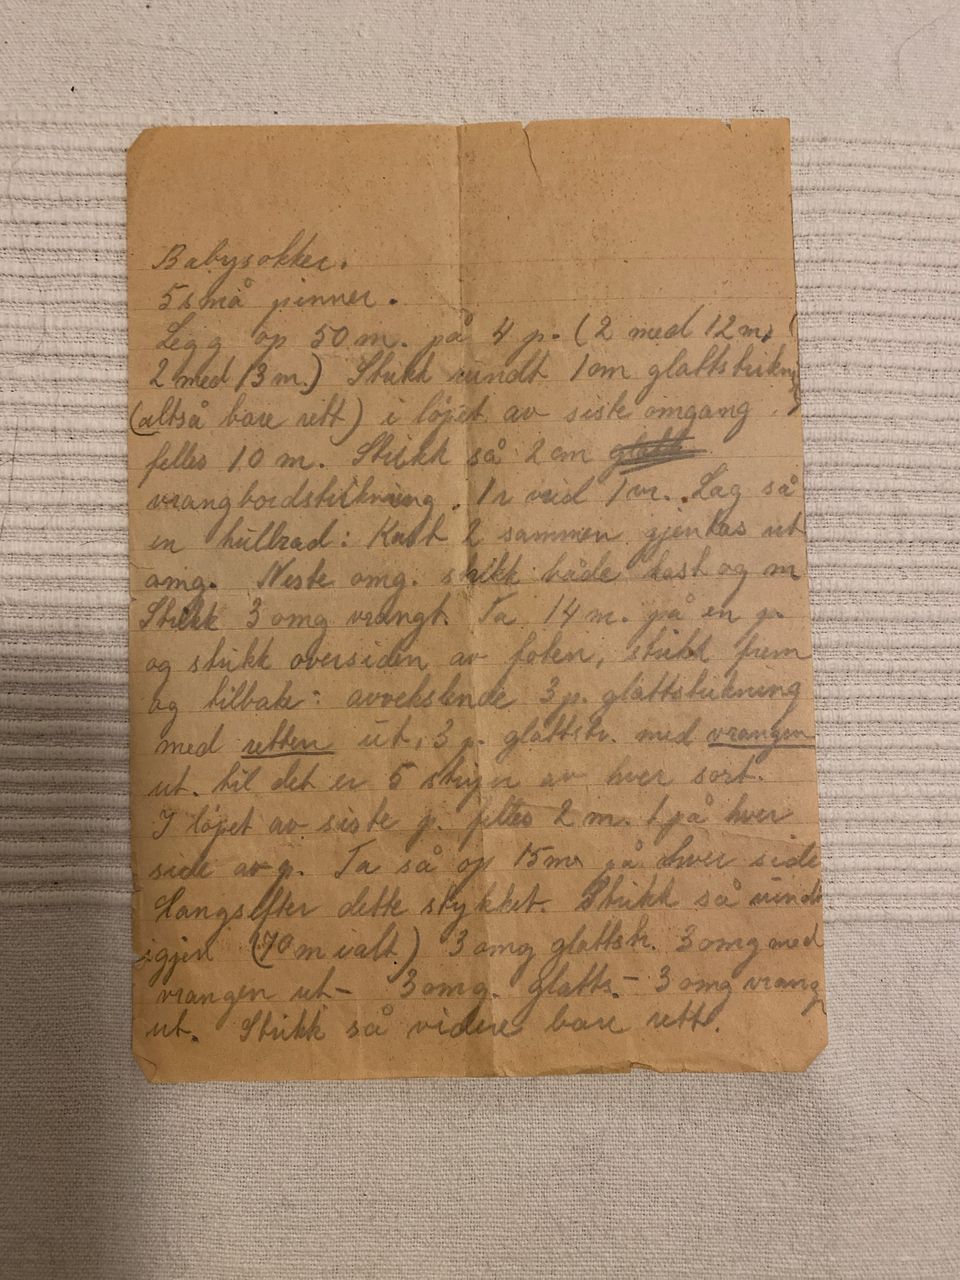 Babysokker.
5 små pinner.
Legg op 50 m. på 4 p. (2 med 12 m,
2 med 13 m.) Strikk rundt 1 cm glattstrikning
(altså bare rett) i løpet av siste omgang
felles 10 m. Strikk så 2 cm glatt
vrangbordstrikning. 1 r vrid 1 vr. Lag så
en hullrad: Kast 2 sammen gjentas ut
omg. Neste omg. strikk både kast og m
Strikk 3 omg vrangt. Ta 14 m. på en p.
og strikk oversiden av foten, strikk frem
og tilbake: avvekslende 3 p. glattstrikning
med retten ut, 3 p. glattstr. med vrangen
ut. til det er 5 striper av hver sort.
I løpet av siste p. felles 2 m. 1 på hver
side av p. Ta så op 15 m på hver side
langsefter dette stykket. Strikk så rundt
igjen (70 m ialt) 3 omg glattstr. 3 omg med
vrangen ut - 3 omg. glatts. - 3 omg vrang
ut. Strikk så videre bare rett.